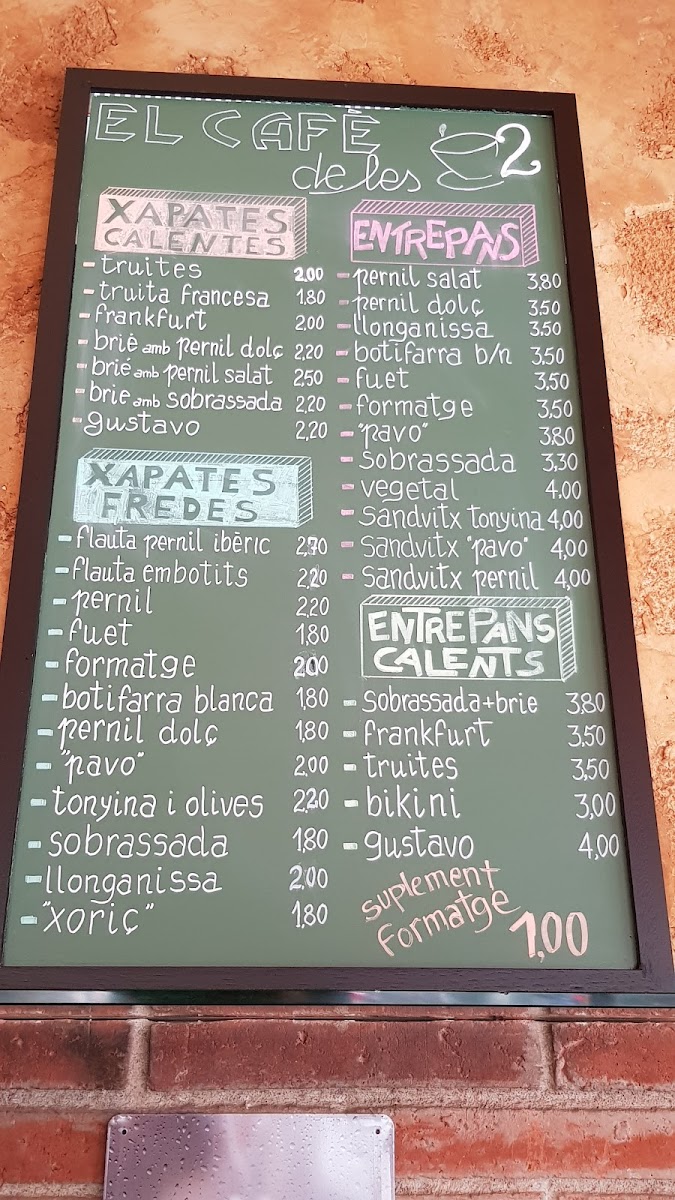 EL CAFÈ
de les 2
XAPATES
CALENTES
- truites 2,00
- truita francesa 1,80
- frankfurt 2,00
- briè amb pernil dolç 2,20
- brié amb pernil salat 2,50
- brie amb sobrassada 2,20
- gustavo 2,20
XAPATES
FREDES
- flauta pernil ibèric 2,70
- flauta embotits 2,20
- pernil 2,20
- fuet 1,80
- formatge 2,00
- botifarra blanca 1,80
- pernil dolç 1,80
- "pavo" 2,00
- tonyina i olives 2,20
- sobrassada 1,80
- llonganissa 2,00
- "xoriç" 1,80
ENTREPANS
- pernil salat 3,80
- pernil dolç 3,50
- llonganissa 3,50
- botifarra b/n 3,50
- fuet 3,50
- formatge 3,50
- "pavo" 3,80
- sobrassada 3,30
- vegetal 4,00
- sandvitx tonyina 4,00
- sandvitx "pavo" 4,00
- sandvitx pernil 4,00
ENTREPANS
CALENTS
- sobrassada+brie 3,80
- frankfurt 3,50
- truites 3,50
- bikini 3,00
- gustavo 4,00
suplement
formatge 1,00